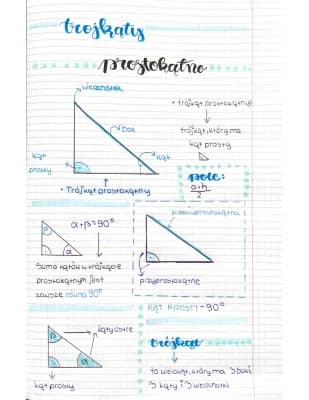 trójkąty
prostokątne
wierzchołek
• trójkąt prostokątny
bok
trójkąt, który ma
kąt prosty
kąt
kąt
prosty
pole:
a·h
2
• Trójkąt prostokątny
α+β=90°
β
α
przeciwprostokątna
Suma kątów w trójkącie
prostokątnym jest
zawsze równa 90°
przyprostokątne
KĄT PROSTY - 90°
kąty ostre
β
α
trójkąt
to wielokąt, który ma 3 boki
3 kąty i 3 wierzchołki
kąt prosty